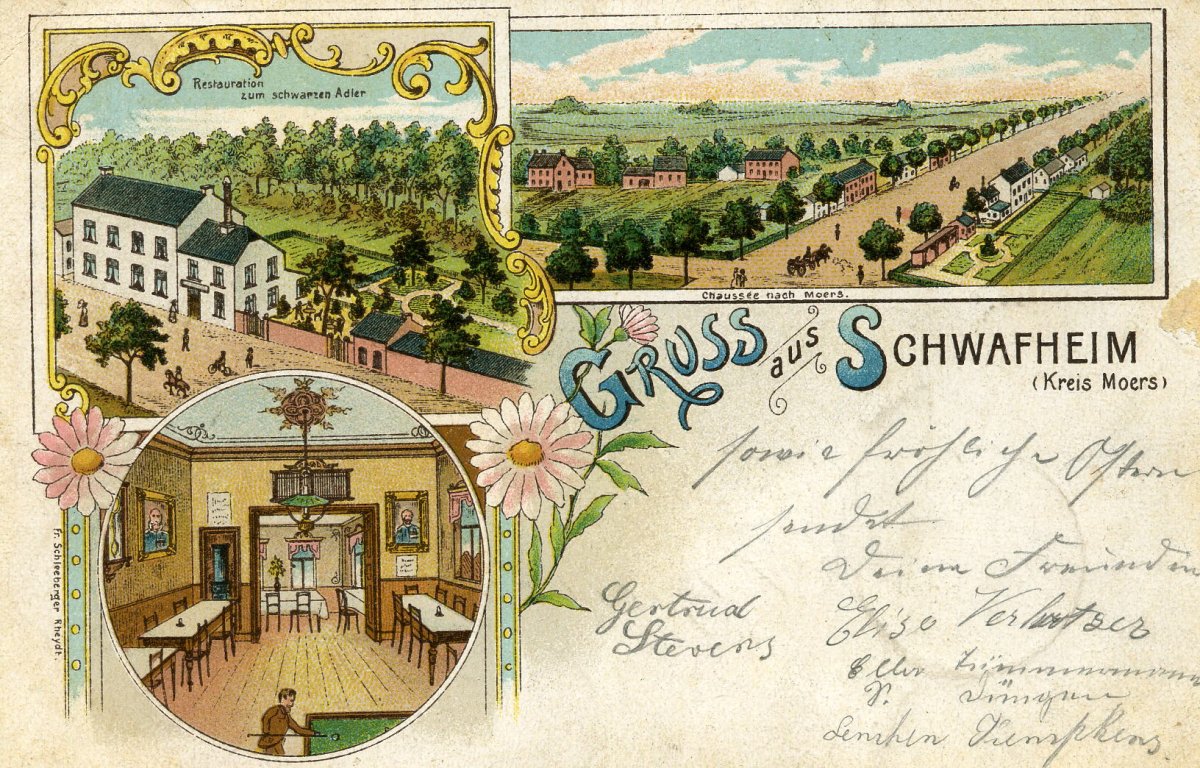 Restauration
zum schwarzen Adler
Chaussée nach Moers.
GRUSS aus SCHWAFHEIM
(Kreis Moers)
sowie fröhliche Ostern
sendet
Deine Freundin
Gertrud
Stevens
Elise
Zimmermann
Lenchen
Fr. Schleeberger Rheydt.